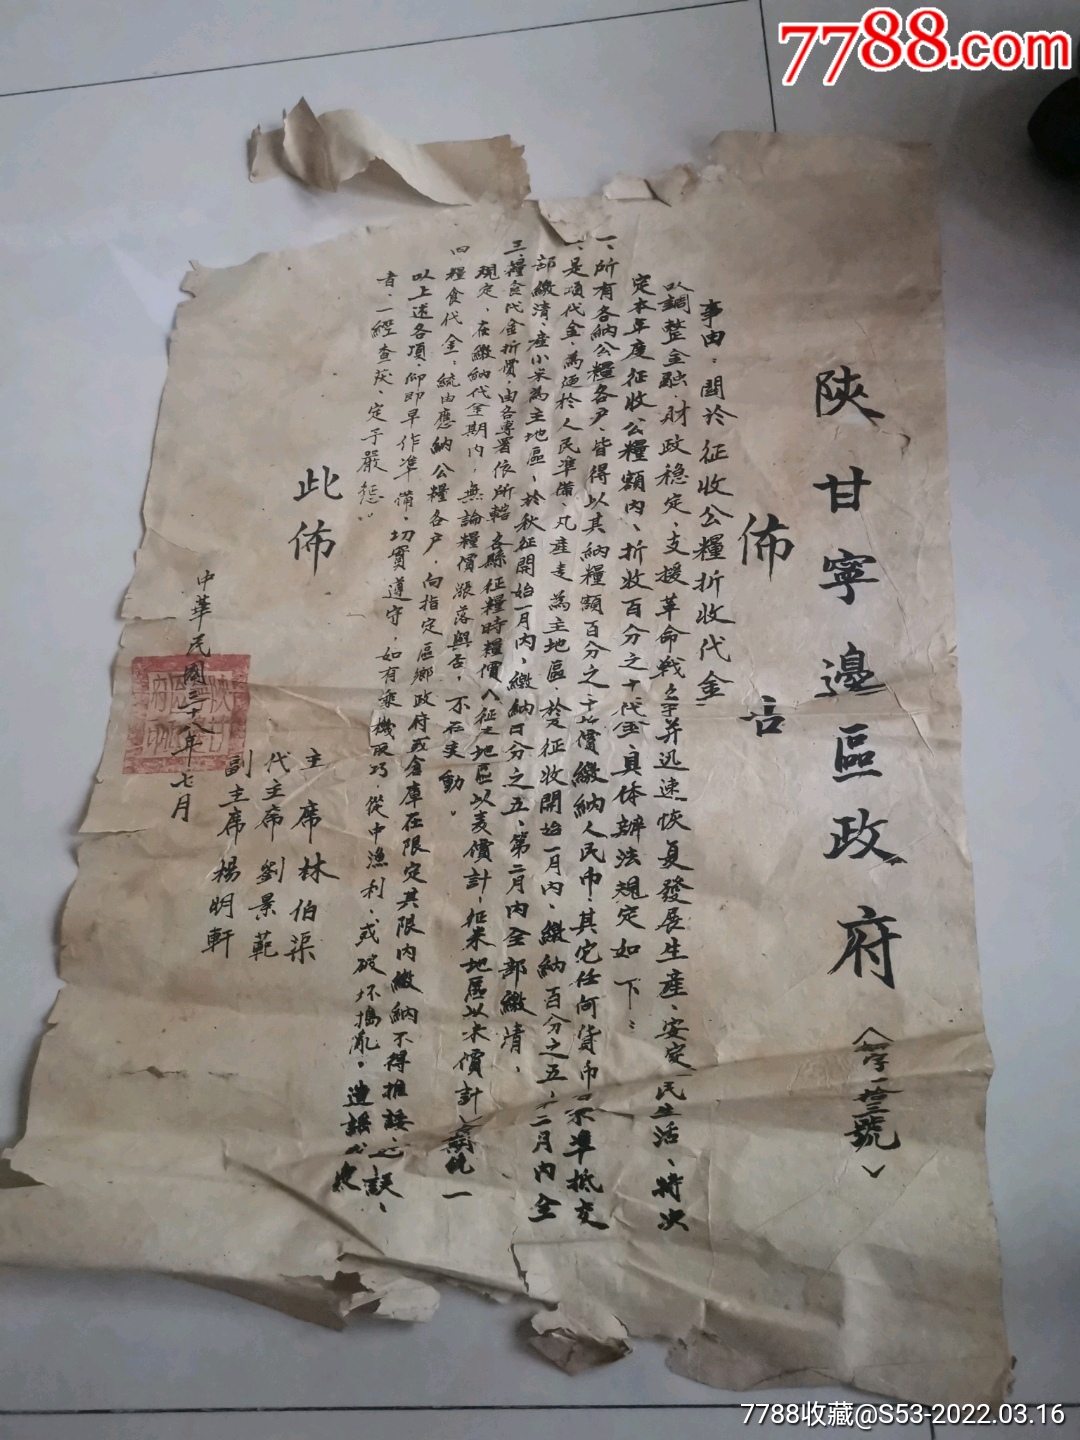 7788.com
陝甘寧邊區政府
佈告
事由：關於征收公糧折收代金
以調整金融、財政稳定、支援革命戰爭并迅速恢复發展生產、安定民生活、特决
定本年度征收公糧額內、折收百分之十代金具体辦法規定如下：
一、所有各納公糧各户、皆得以其納糧額百分之十折價繳納人民币、其它任何货币不準抵交
、是項代金、為便於人民準備、凡產麦為主地區、於夏征收開始一月內、繳納百分之五、二月內全
部繳清、產小米為主地區、於秋征開始一月內、繳納百分之五、第二月內全部繳清、
三、糧食代金折價、由各專署依所轄各縣征糧時糧價、征麦地區以麦價計、征米地區以米價計、統一
規定、在繳納代金期內、無論糧價漲落與否、不在变動。
四 糧食代金、統由應納公糧各户、向指定區鄉政府或倉庫在限定其限內繳納不得推諉、
以上述各項、仰即早作準備、切實遵守、如有乘機取巧、從中漁利、或破坏搗亂、造謠
者、一經查获、定予嚴惩
此佈
主席 林伯渠
代主席 劉景範
副主席 楊明軒
中華民國三十八年七月
7788收藏@S53-2022.03.16